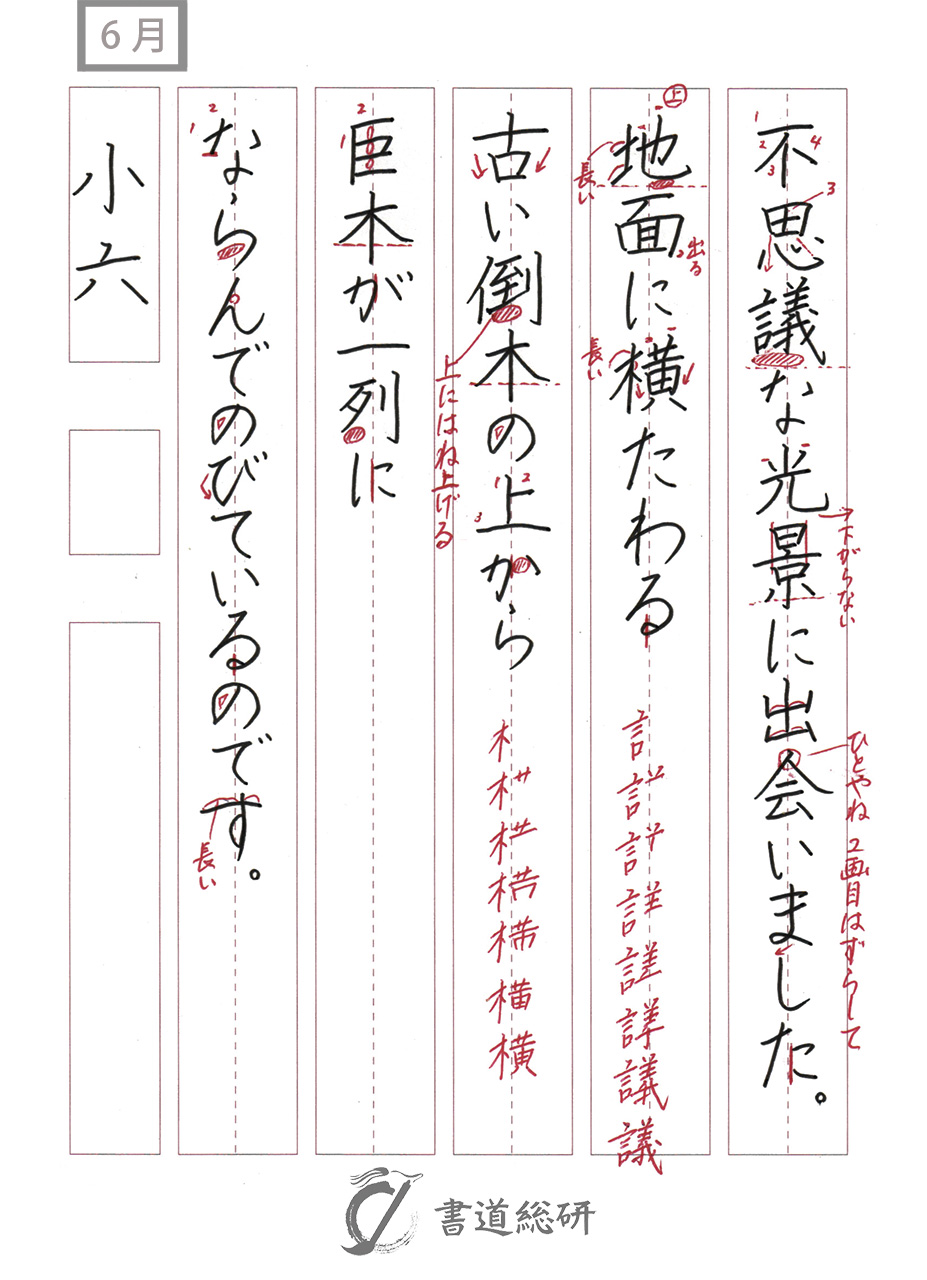 6月
不思議な光景に出会いました。
下がらない
ひとやね 2画目はずらして
地面に横たわる
上
長い
出る
長い
議
議
古い倒木の上から
上にはね上げる
横
巨木が一列に
ならんでのびているのです。
長い
小六
書道総研